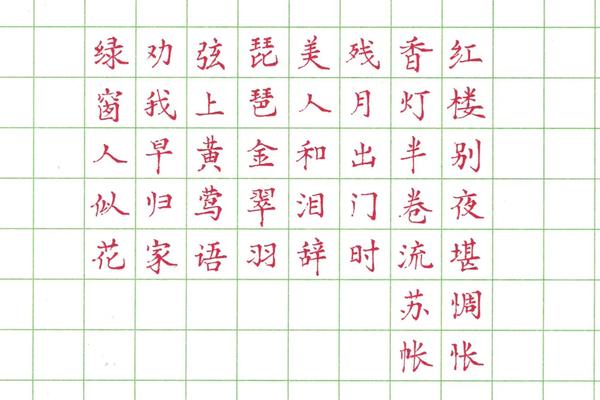 红楼别夜堪惆怅
香灯半卷流苏帐
残月出门时
美人和泪辞
琵琶金翠羽
弦上黄莺语
劝我早归家
绿窗人似花